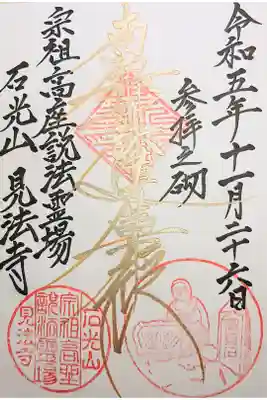 令和五年十一月二十六日
参拝之砌
南無妙法蓮華経
宗祖高座説法霊場
石光山 見法寺
石光山
宗祖高座説法霊場
見法寺